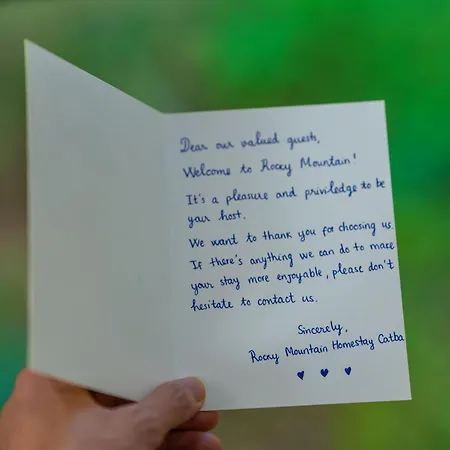 Dear our valued guests,
Welcome to Rocky Mountain!
It's a pleasure and priviledge to be
your host.
We want to thank you for choosing us.
If there's anything we can do to make
your stay more enjoyable, please don't
hesitate to contact us.
Sincerely,
Rocky Mountain Homestay Catba